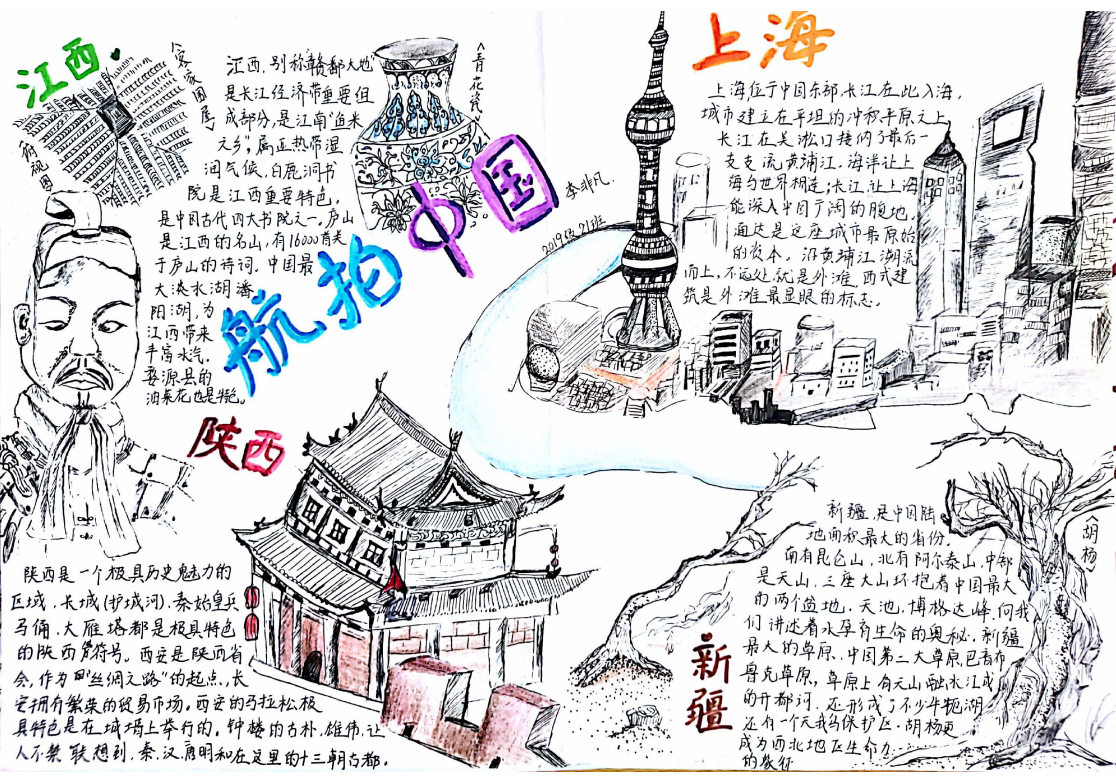 江西
客家围屋
俯视图
江西，别称"赣鄱大地"
是长江经济带重要组
成部分，是江南"鱼米
之乡"，属亚热带湿
润气候，白鹿洞书
院是江西重要特色，
是中国古代四大书院之一，庐山
是江西的名山，有16000首关
于庐山的诗词。中国最
大淡水湖潘
阳湖，为
江西带来
丰富水汽，
婺源县的
油菜花也是特色。
<青花瓷>
航拍中国
李非凡
2019级21班
上海
上海位于中国东部，长江在此入海，
城市建立在平坦的冲积平原之上
长江在吴淞口接纳了最后一
支支流，黄浦江，海洋让上
海与世界相连，长江，让上海
能深入中国广阔的腹地，
通达是这座城市最原始
的资本。沿黄浦江溯流
而上，不远处就是外滩，西式建
筑是外滩最显眼的标志。
陕西
陕西是一个极具历史魅力的
区域，长城(护城河)，秦始皇兵
马俑，大雁塔都是极具特色
的陕西符号。西安是陕西省
会，作为"丝绸之路"的起点，长
安拥有繁荣的贸易市场。西安的马拉松极
具特色是在城墙上举行的。钟楼的古朴，雄伟，让
人不禁联想到，秦，汉，唐，明和在这里的十三朝古都。
新疆
胡杨
新疆，是中国陆
地面积最大的省份。
南有昆仑山，北有阿尔泰山，中部
是天山，三座大山环抱着中国最大
的两个盆地，天池，博格达峰向我
们讲述着水孕育生命的奥秘，新疆
最大的草原，中国第二大草原，巴音布
鲁克草原，草原上有天山融水汇成
的开都河，还形成了不少牛轭湖
还有一个天鹅保护区。胡杨更
成为西北地区生命力
的象征